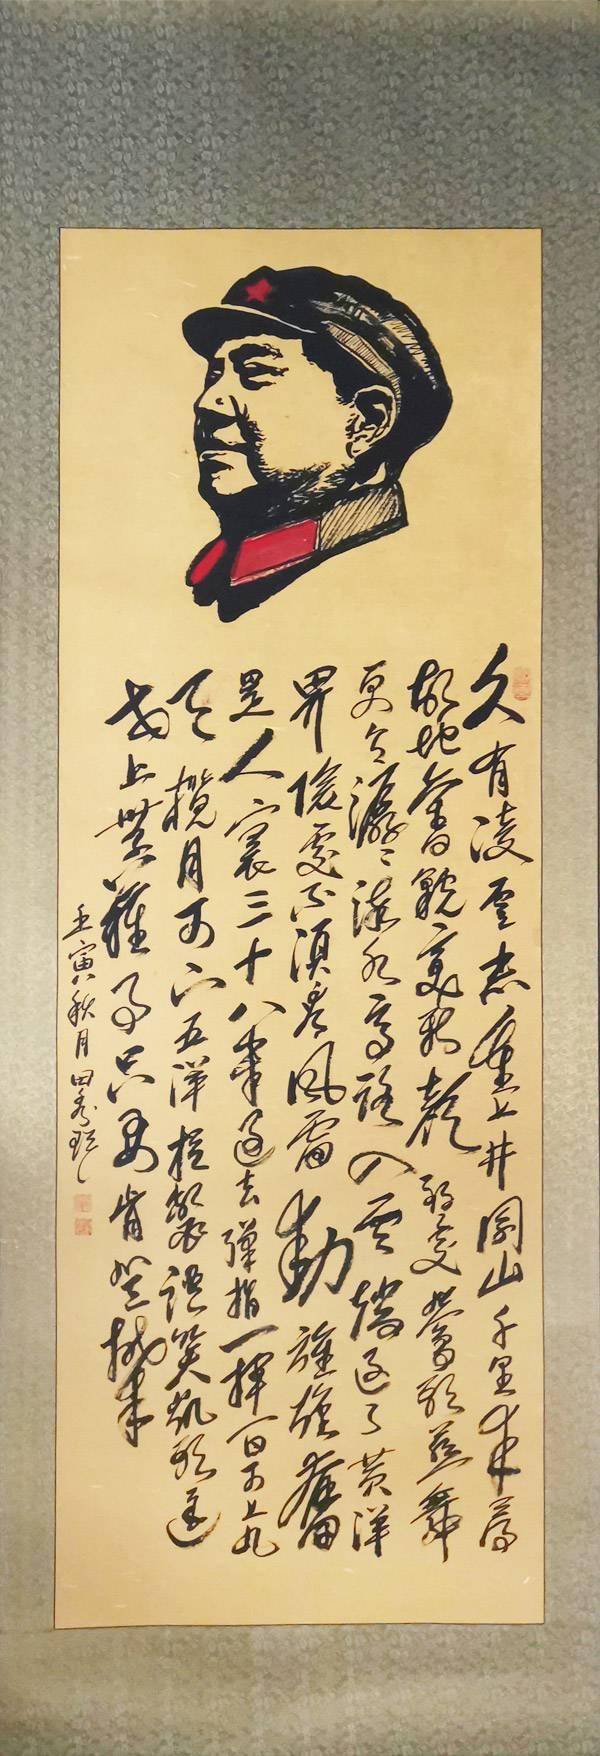 久有凌雲志重上井岡山千里來尋
故地舊貌變新顏到處鶯歌燕舞
更有潺〻流水高路入雲端過了黃洋
界險處不須看風雷動旌旗奮
是人寰三十八年過去彈指一揮間可上九
天攬月可下五洋捉鱉談笑凱歌還
世上無難事只要肯登攀
壬寅秋月田